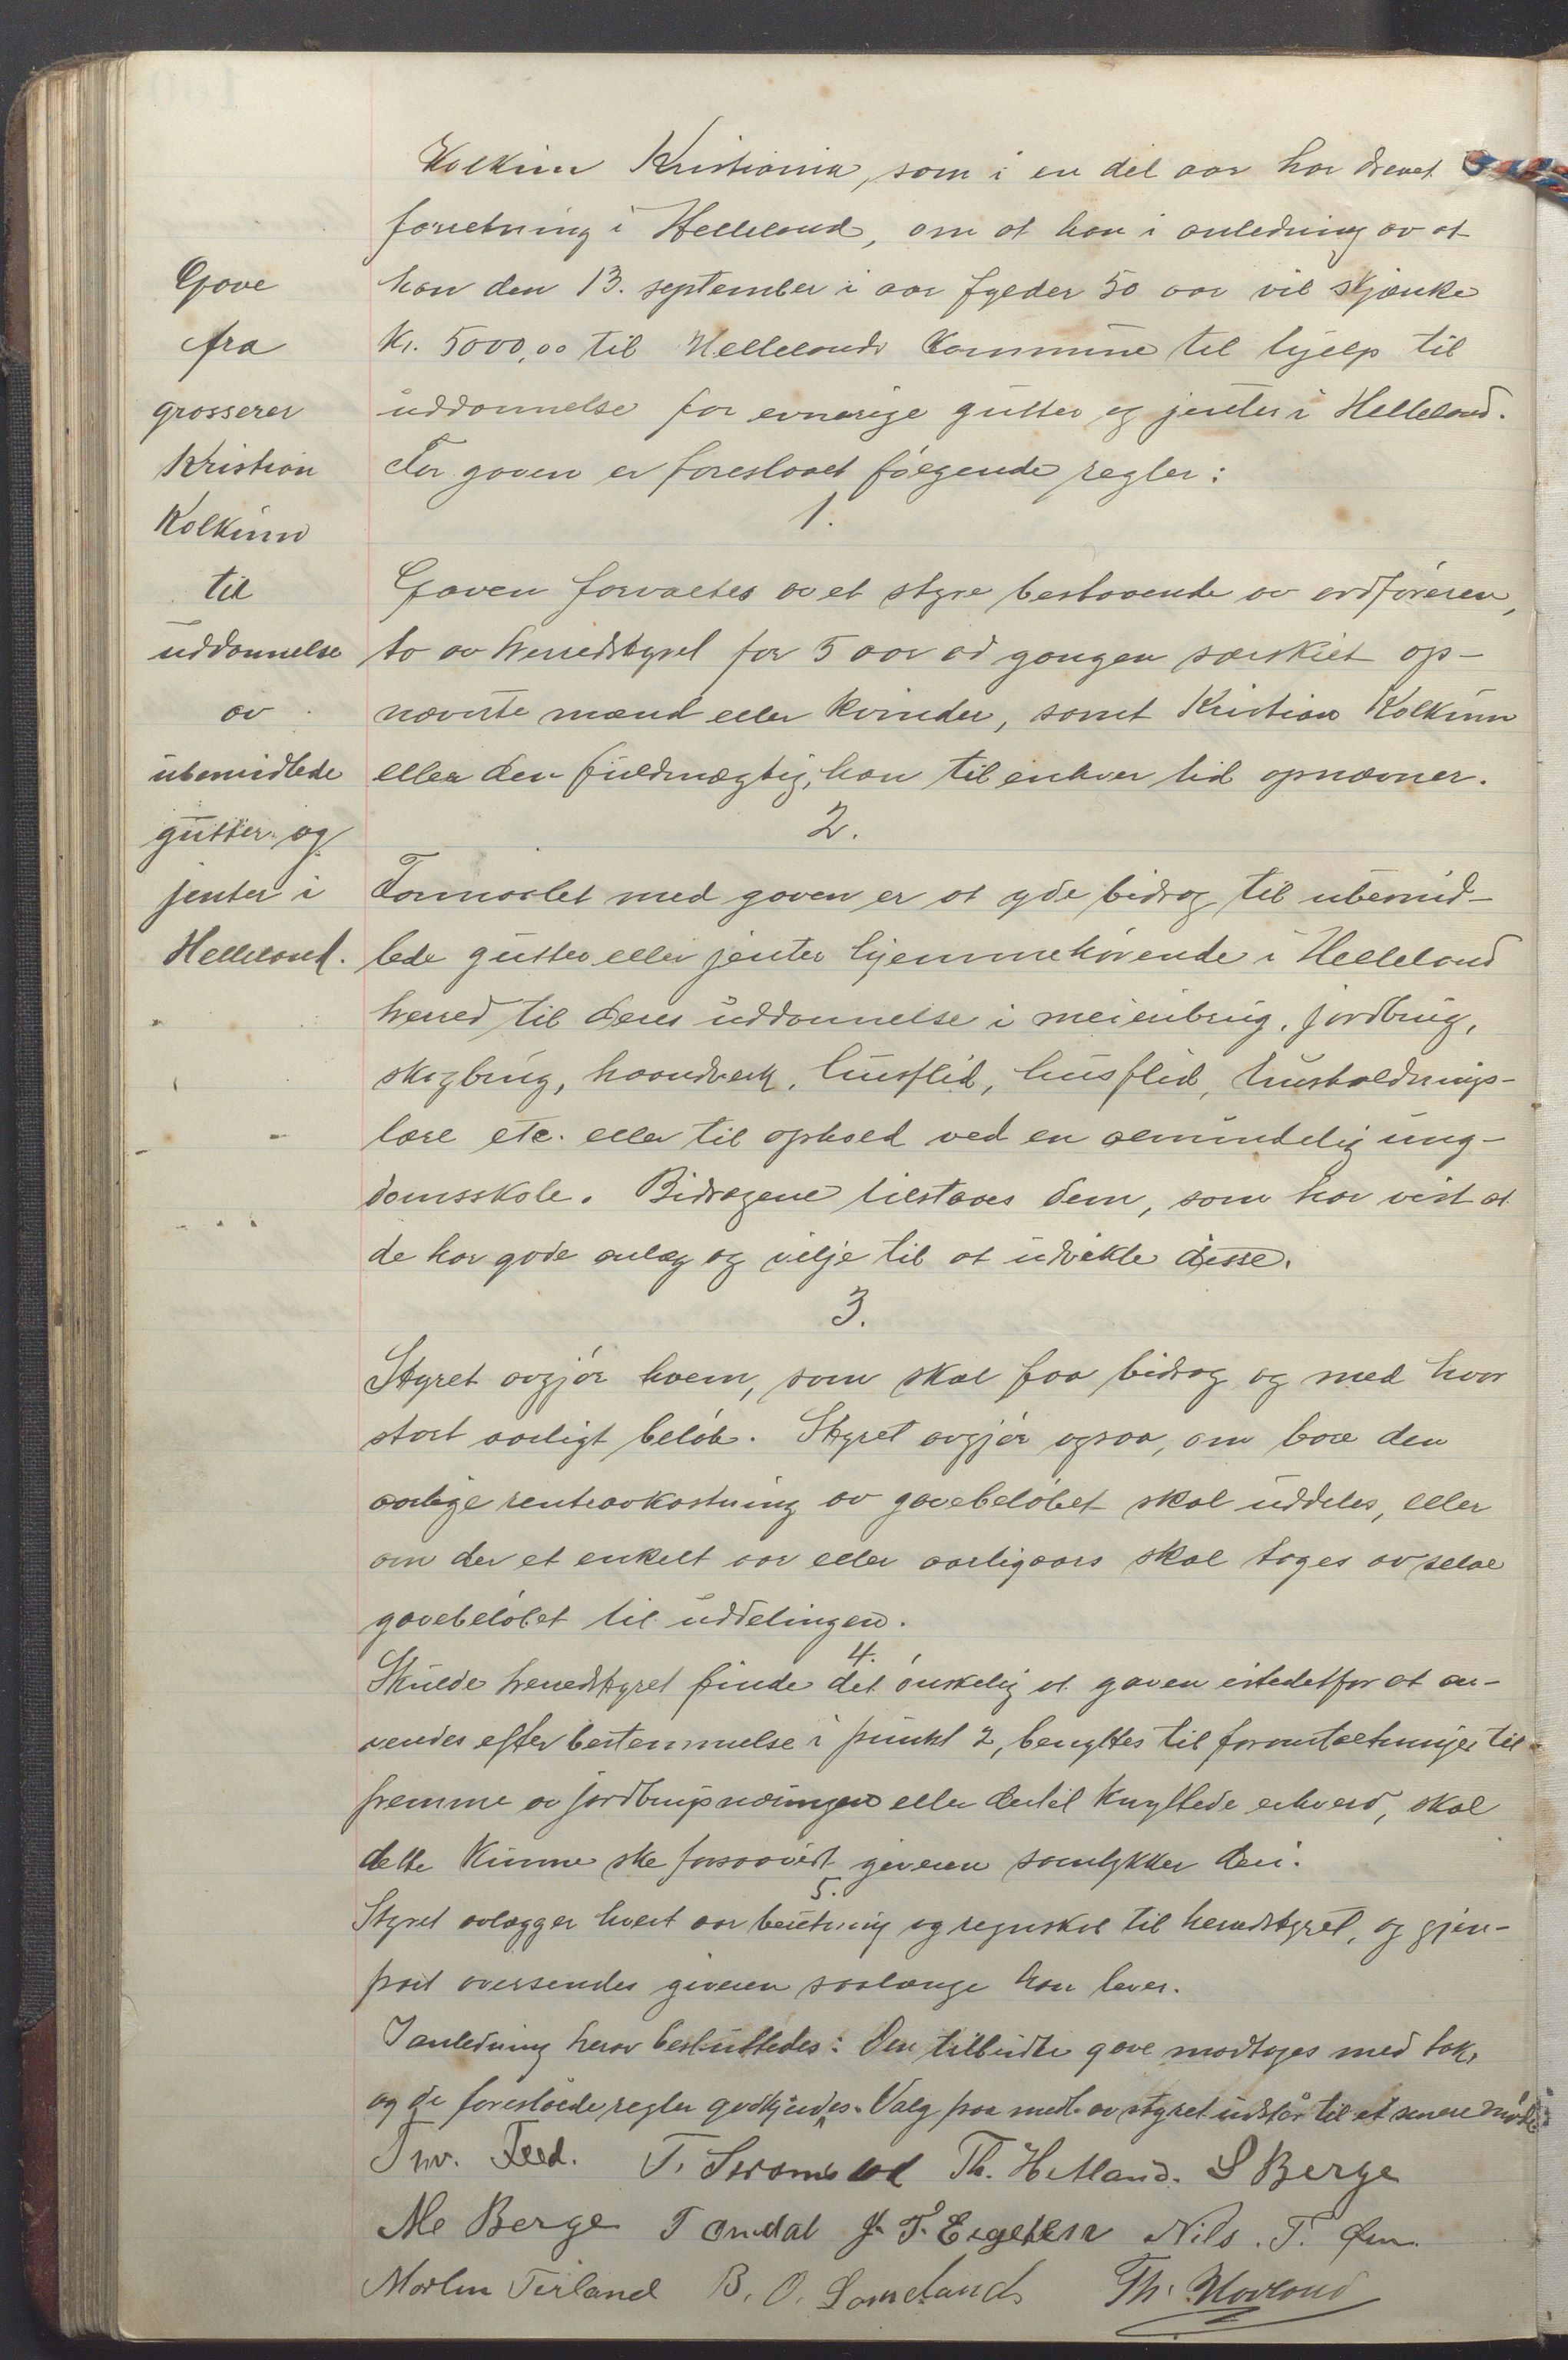 Kolkinn Kristiania, som i en del aar har drevet
forretning i Helleland, om at han i anledning av at
han den 13. september i aar fylder 50 aar vil skjænke
Kr. 5000,00 til Hellelands Kommune til hjelp til
uddannelse for evnerige gutter og jenter i Helleland.
For gaven er foreslaaet følgende regler:
Gave
fra
grosserer
Kristian
Kolkinn
til
uddannelse
av
ubemidlede
gutter og
jenter i
Helleland.
1.
Gaven forvaltes av et styre bestaaende av ordføreren,
to av herredstyret for 5 aar ad gangen særskilt op-
nævnte mænd eller kvinder, samt Kristian Kolkinn
eller den fuldmægtig, han til enhver tid opnævner.
2.
Formaalet med gaven er at yde bidrag til ubemid-
lede gutter eller jenter hjemmehørende i Helleland
herred til deres uddannelse i meieribrug, jordbrug,
skogbrug, haandverk, husflid, husflid, husholdnings-
lære etc. eller til ophold ved en almindelig ung-
domsskole. Bidragene tilstaaes dem, som har vist at
de har gode anlæg og vilje til at udvikle disse.
3.
Styret avgjør hvem, som skal faa bidrag og med hvor
stort aarligt beløb. Styret avgjør ogsaa, om bare den
aarlige renteavkastning av gavebeløbet skal uddeles, eller
om der et enkelt aar eller aarligaars skal tages av selve
gavebeløbet til uddelingen.
4.
Skulde herredstyret finde det ønskelig at gaven istedetfor at an-
vendes efter bestemmelse i punkt 2, benyttes til foranstaltninger til
fremme av jordbrugsnæringen eller dertil knyttede erhverv, skal
dette kunne ske forsaavidt giveren samtykker deri.
5.
Styret avlægger hvert aar beretning og regnskab til herredstyret, og gjen-
part oversendes giveren saalænge han lever.
I anledning herav besluttedes: Den tilbudte gave modtages med tak,
og de foreslåede regler godkjendes. Valg paa medl. av styret utstår til et senere møde.
T. Th. Hetland. S Berge
Berge T Omdal J. T. Eigeland Nils. T.
Martin Terland B. O. Lomeland Th. Hovland